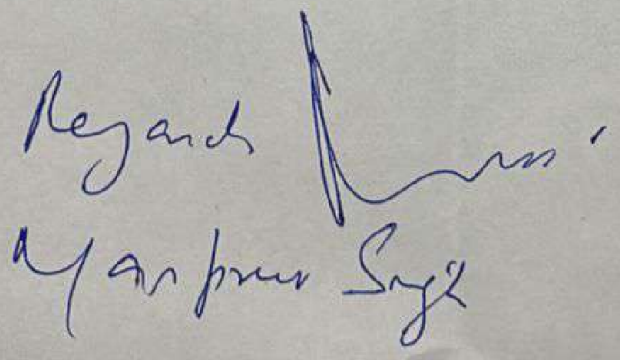 Regards
Manpreet Singh